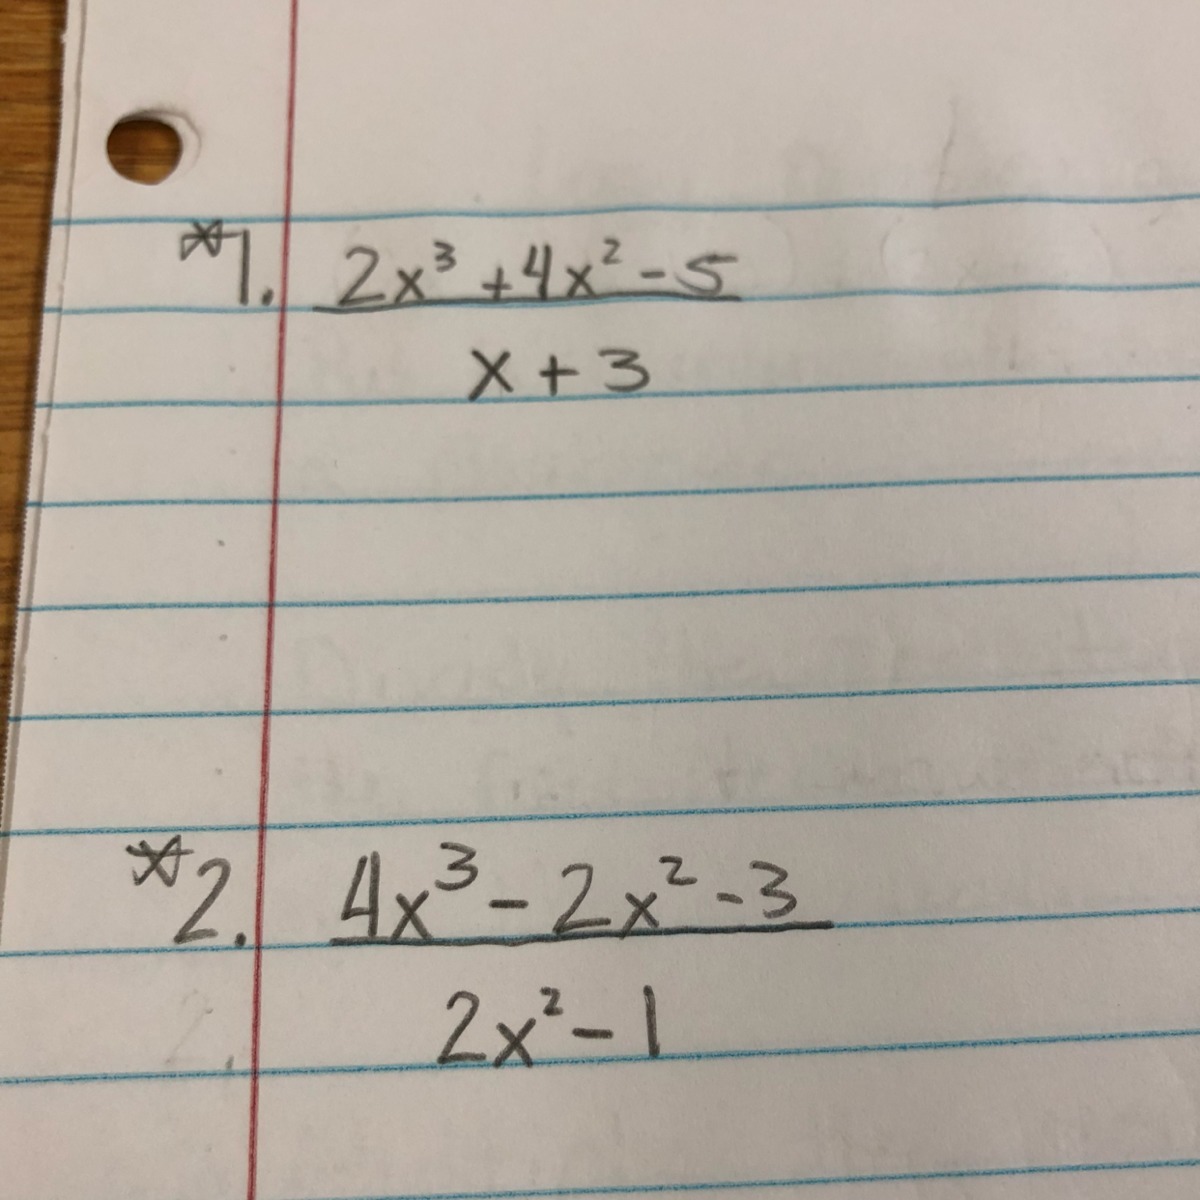 *1. 2x³ + 4x² - 5
x + 3
*2. 4x³ - 2x² - 3
2x² - 1
2.